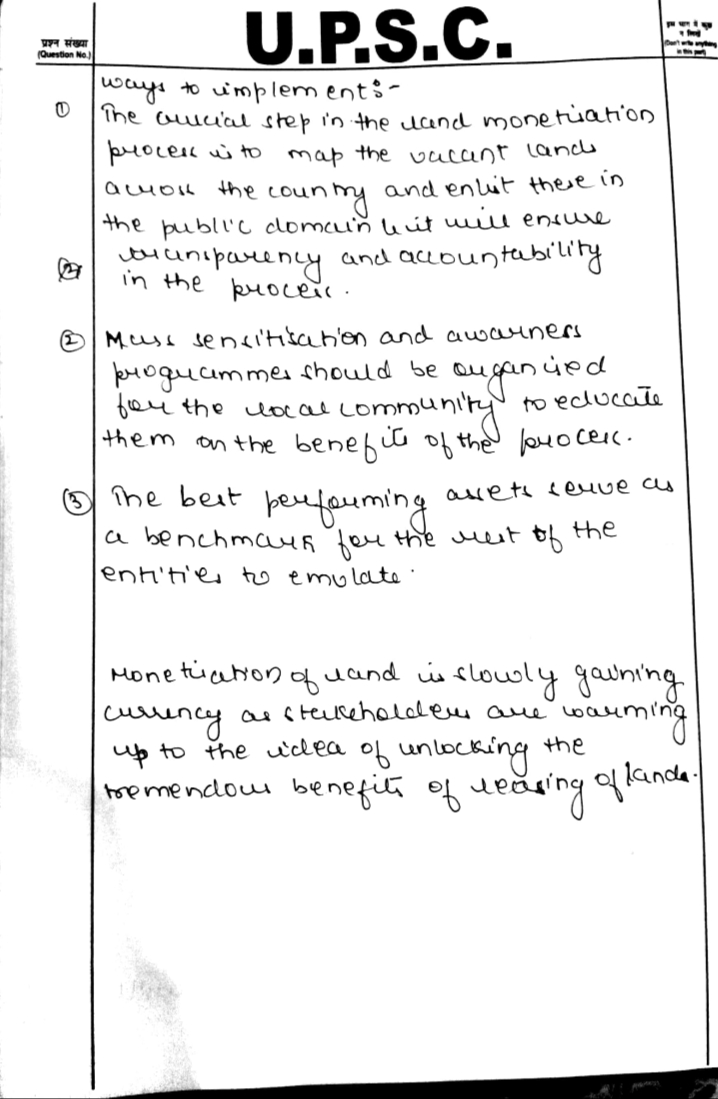 प्रश्न संख्या
(Question No.)
U.P.S.C.
इस भाग में कुछ
न लिखें
(Don't write anything
in this part)
ways to implement:-
① The crucial step in the land monetisation
process is to map the vacant lands
across the country and enlist these in
the public domain as it will ensure
transparency and accountability
in the process.
② Mass sensitisation and awarness
programmes should be organised
for the local community to educate
them on the benefits of the process.
③ The best performing assets serve as
a benchmark for the rest of the
entities to emulate.
Monetisation of land is slowly gaining
currency as stakeholders are warming
up to the idea of unlocking the
tremendous benefits of leasing of lands.